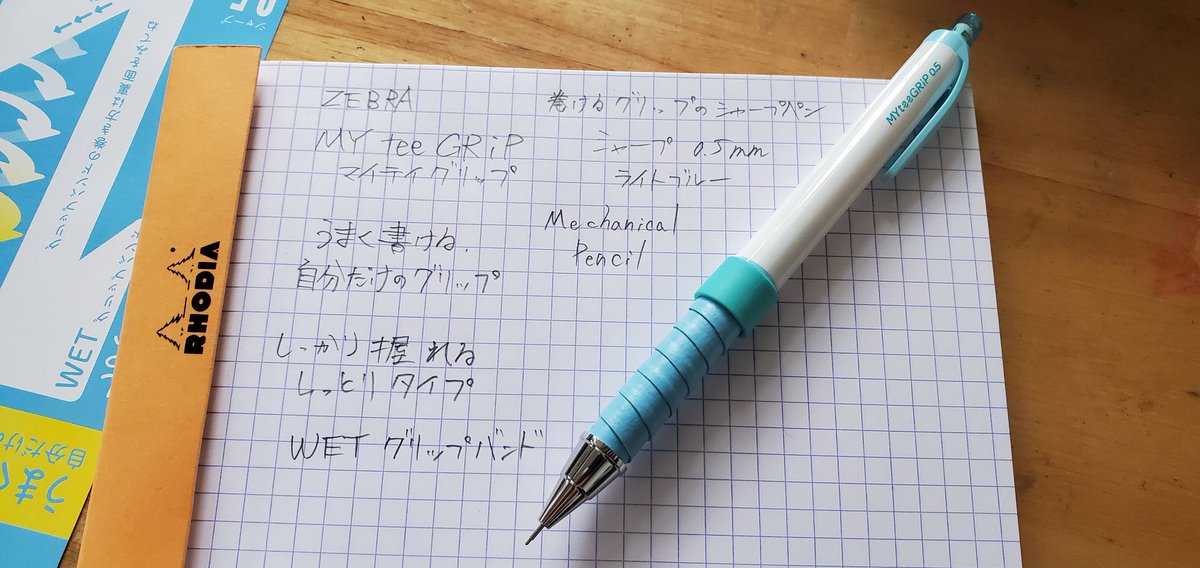 ZEBRA
MY tee GRiP
マイティグリップ
うまく書ける、
自分だけのグリップ
しっかり握れる
しっとりタイプ
WET グリップバンド
巻けるグリップのシャープペン
シャープ 0.5mm
ライトブルー
Mechanical
Pencil
MYteeGRiP 0.5
RHODIA
シャープ
0.5
グリップバンドの巻き方は裏面をみてね
WET グリップバンド
うまく
自分だけ